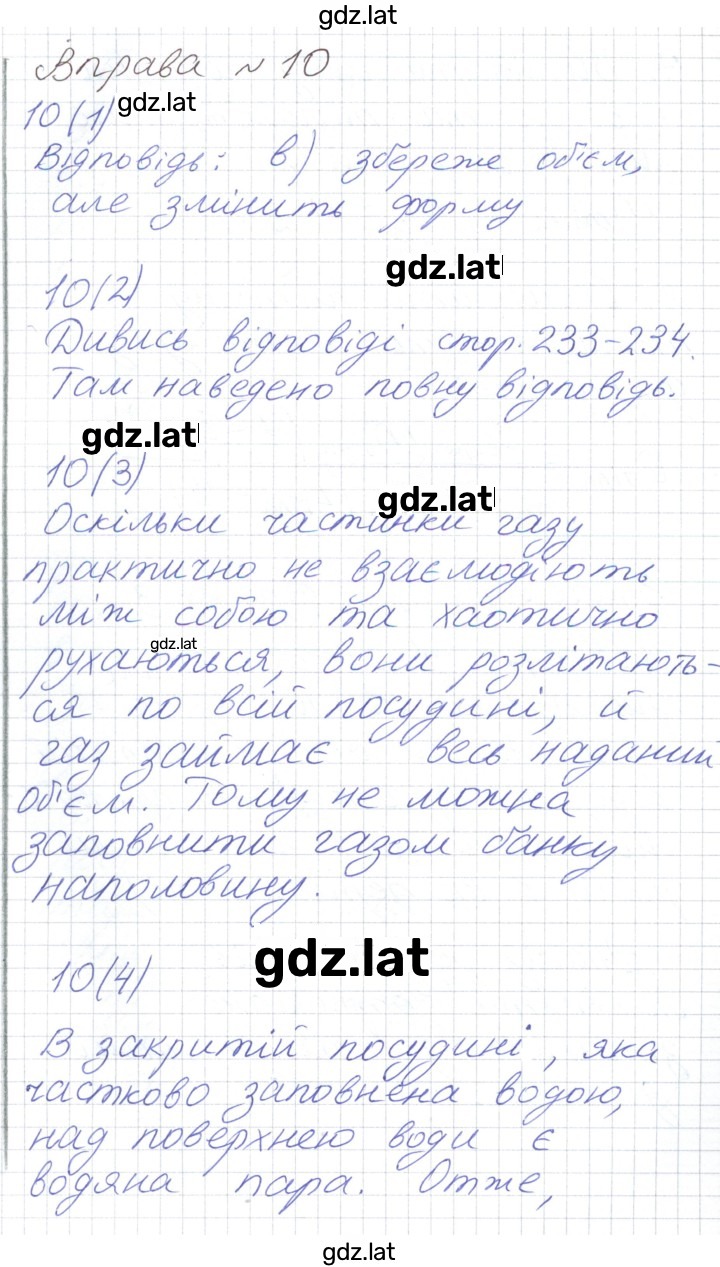 gdz.lat
Вправа № 10
gdz.lat
10(1)
Відповідь: в) збереже об'єм,
але змінить форму
gdz.lat
10(2)
Дивись відповіді стор. 233-234.
Там наведено повну відповідь.
gdz.lat
10(3)
gdz.lat
Оскільки частинки газу
практично не взаємодіють
між собою та хаотично
gdz.lat
рухаються, вони розлітають-
ся по всій посудині, й
газ займає весь наданий
об'єм. Тому не можна
заповнити газом банку
наполовину.
gdz.lat
10(4)
В закритій посудині, яка
частково заповнена водою,
над поверхнею води є
водяна пара. Отже,
gdz.lat